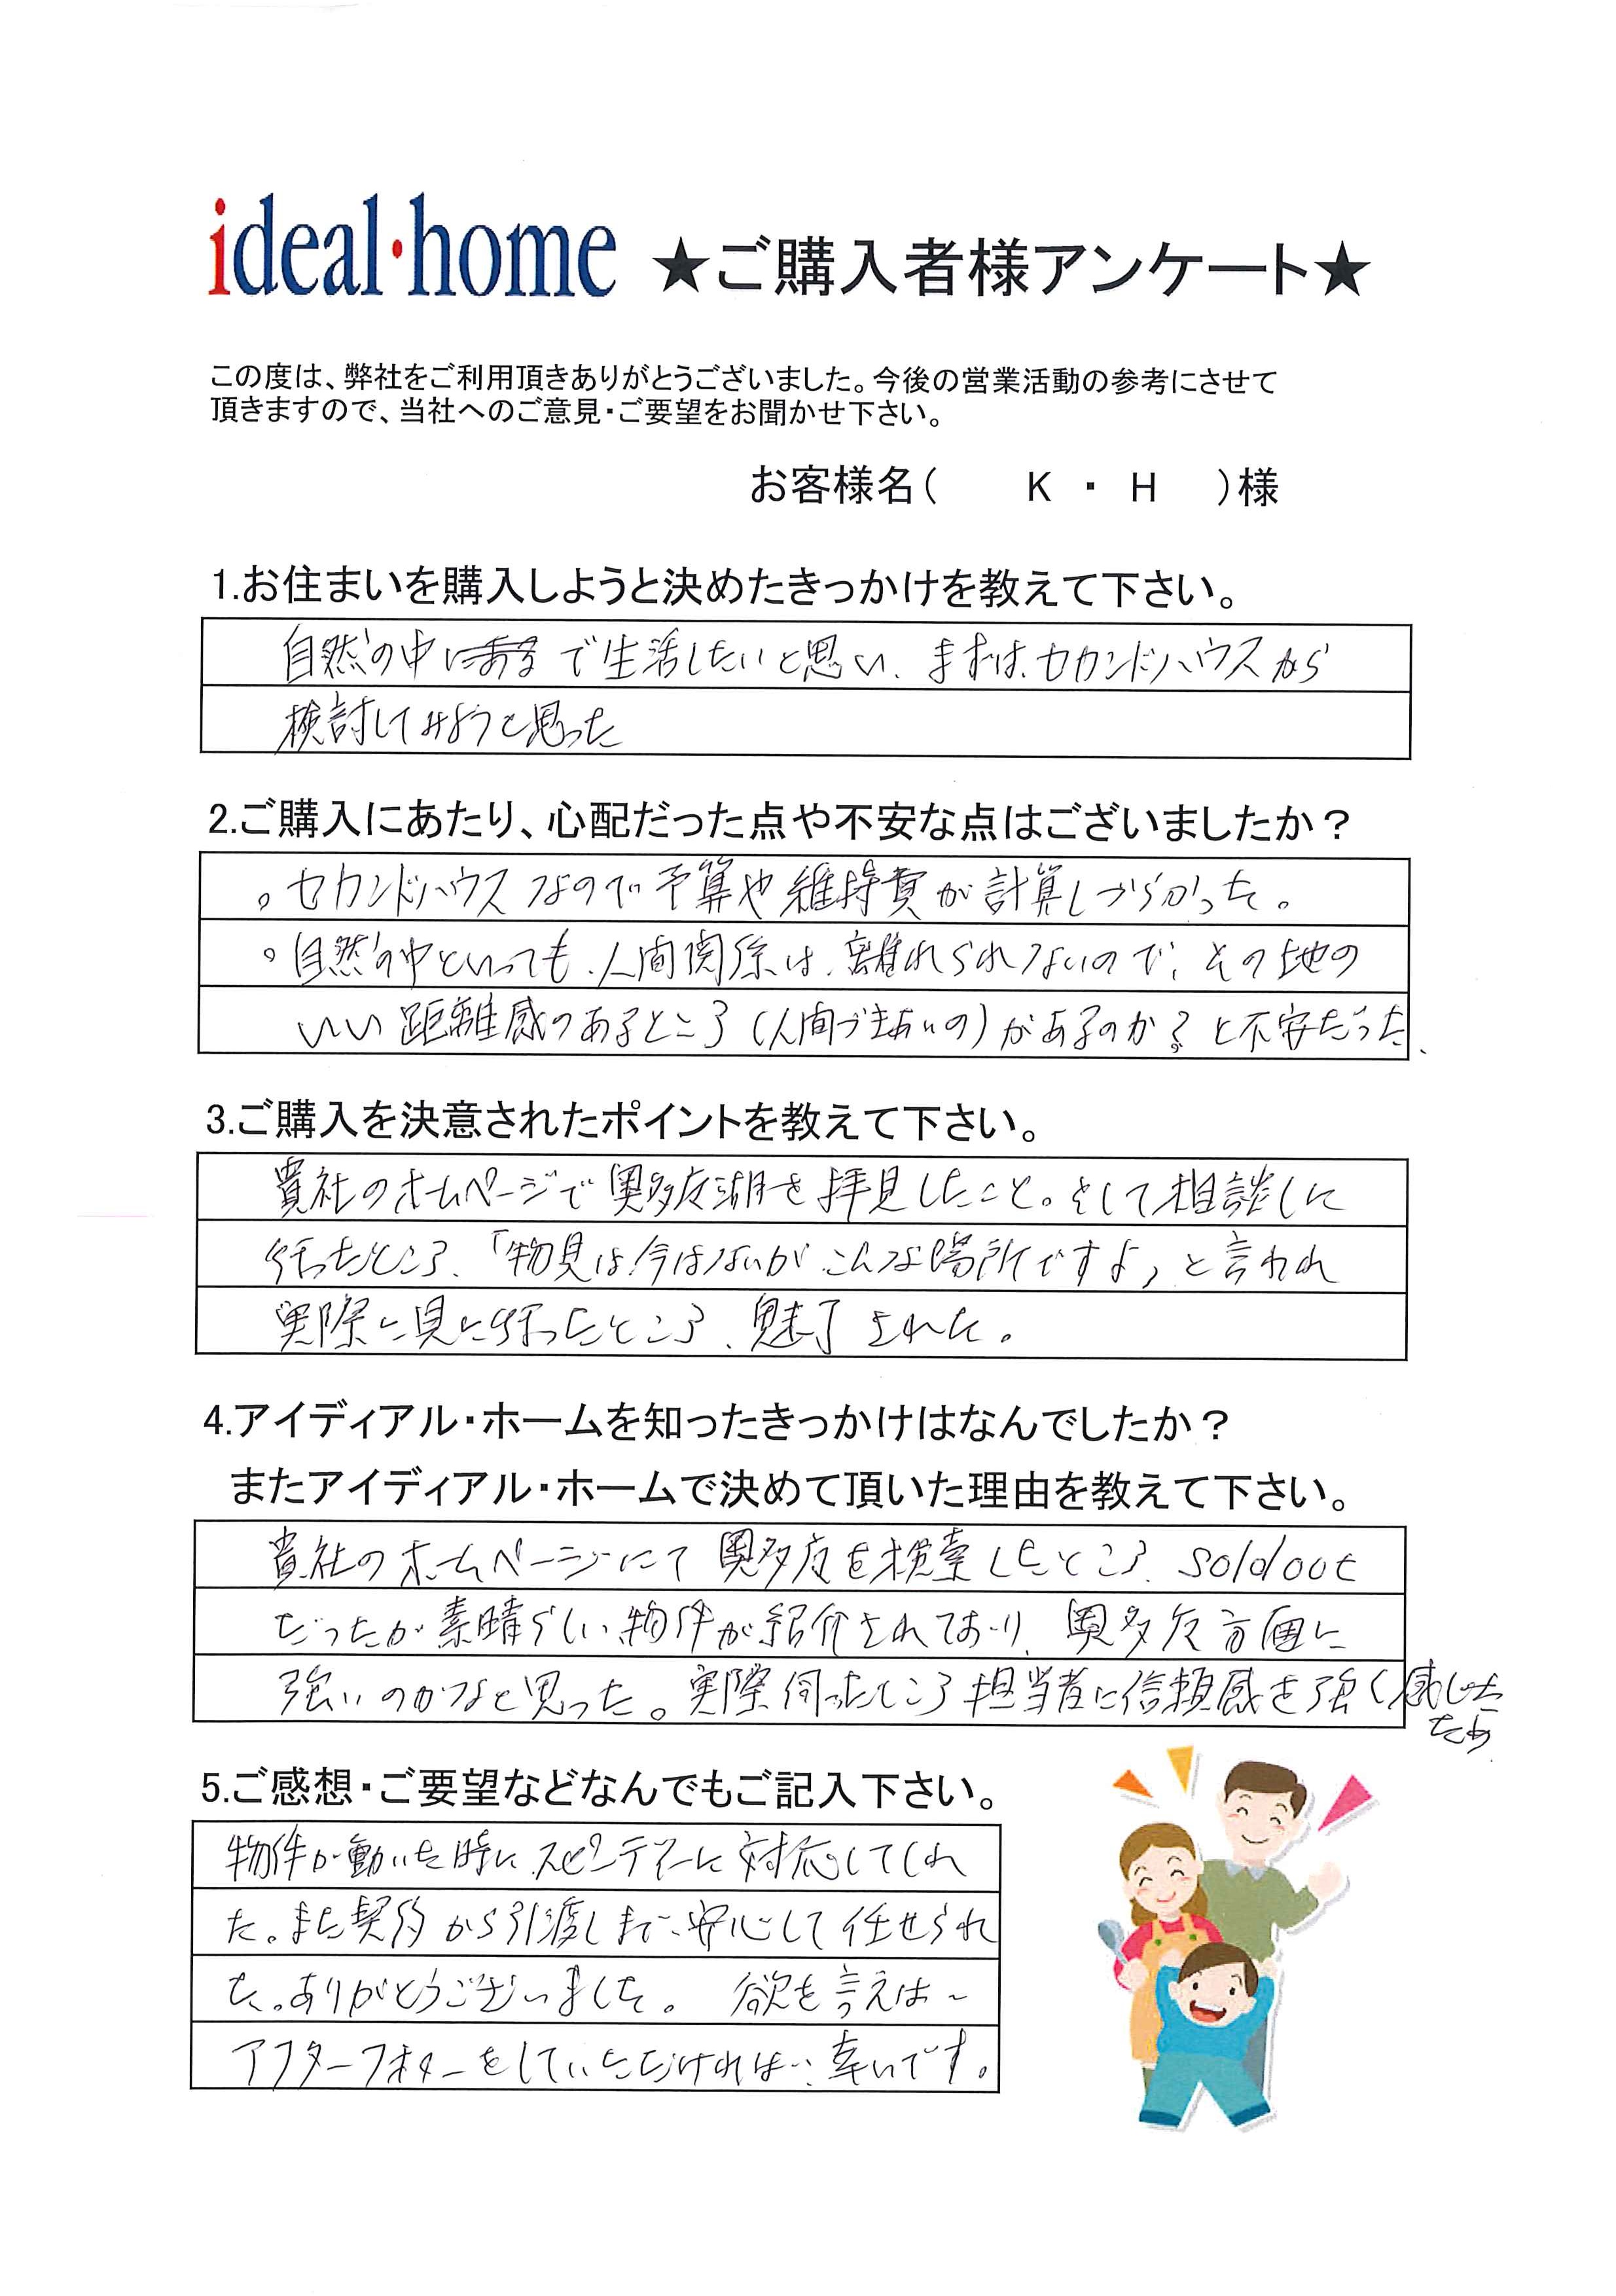 ideal・home ★ご購入者様アンケート★
この度は、弊社をご利用頂きありがとうございました。今後の営業活動の参考にさせて
頂きますので、当社へのご意見・ご要望をお聞かせ下さい。
お客様名( K ・ H )様
1.お住まいを購入しようと決めたきっかけを教えて下さい。
自然の中で生活したいと思い、まずは、セカンドハウスから
検討してみようと思った
2.ご購入にあたり、心配だった点や不安な点はございましたか？
。セカンドハウスなので予算や維持費が計算しづらかった。
。自然の中といっても、人間関係は、離れられないので、その地の
いい距離感のあるところ(人間づきあいの)があるのか？と不安だった、
3.ご購入を決意されたポイントを教えて下さい。
貴社のホームページで奥多摩湖を拝見したこと。そして相談しに
行ったところ、「物見は今はないが、こんな場所ですよ」と言われ
実際に見に行ったところ、魅了された。
4.アイディアル・ホームを知ったきっかけはなんでしたか？
またアイディアル・ホームで決めて頂いた理由を教えて下さい。
貴社のホームページにて奥多摩を検索したところ、soldout
だったが素晴らしい物件が紹介されており、奥多摩方面に
強いのかなと思った。実際伺ったところ担当者に信頼感を強く感じた
ため、
5.ご感想・ご要望などなんでもご記入下さい。
物件が動いた時に、スピーディーに対応してくれ
た。また契約から引渡しまで、安心して任せられ
た。ありがとうございました。 欲を言えば〜
アフターフォローをしていただければ、幸いです。